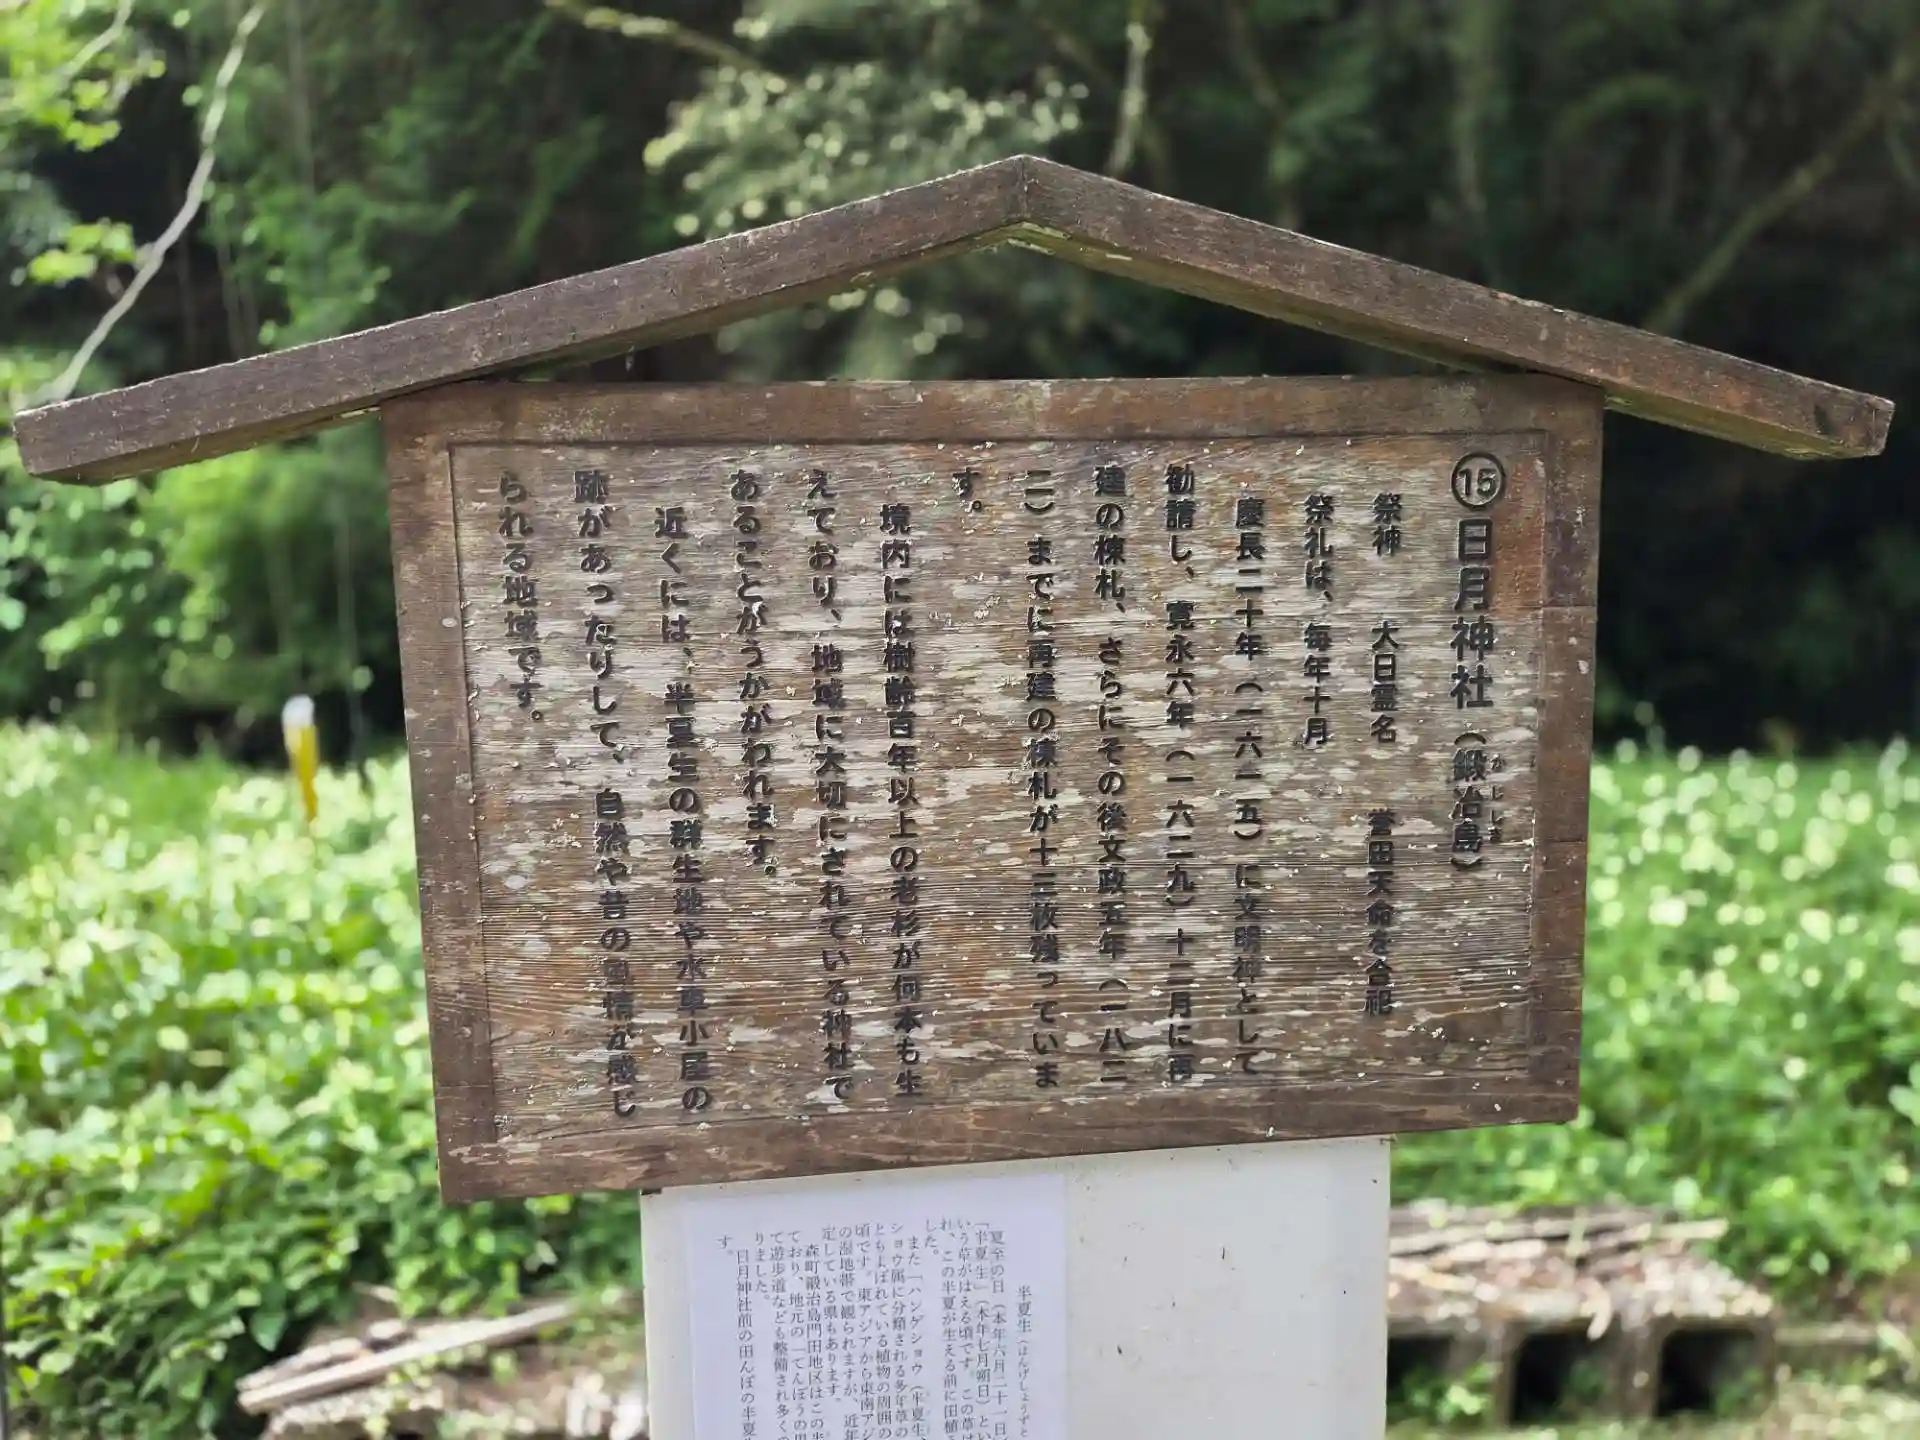 ⑮日月神社（鍛冶島）
かじしま
祭神　大日霊名　誉田天命を合祀
祭礼は、毎年十月
慶長二十年（一六一五）に文明神として
勧請し、寛永六年（一六二九）十二月に再
建の棟札、さらにその後文政五年（一八二
二）までに再建の棟札が十三枚残っていま
す。
境内には樹齢百年以上の老杉が何本も生
えており、地域に大切にされている神社で
あることがうかがわれます。
近くには、半夏生の群生地や水車小屋の
跡があったりして、自然や昔の風情が感じ
られる地域です。
半夏生（はんげしょうずと
夏至の日（本年六月二十一日）
「半夏生」（本年七月朔日）とい
いう草がはえる頃です。この草は
れ、この半夏が生える前に田植
した。
また「ハンゲショウ（半夏生、
ショウ属に分類される多年草の
ともよばれている植物の周囲の
頃です。東アジアから東南アジ
の湿地帯で観られますが、近年
定している県もあります。
森町鍛治島門田地区はこの半
ており、地元の「てんぽうの里
て遊歩道なども整備され多くの
りました。
日月神社前の田んぼの半夏生
す。